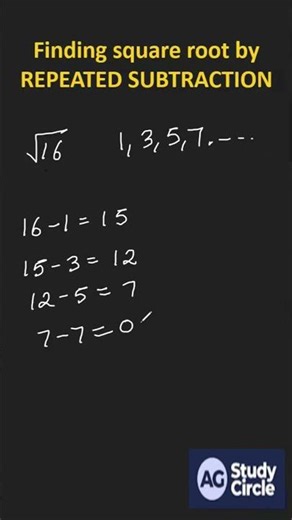 Finding square root by
REPEATED SUBTRACTION
√16 1, 3, 5, 7. ----
16-1 = 15
15-3 = 12
12-5 = 7
7-7=0
AG Study
Circle